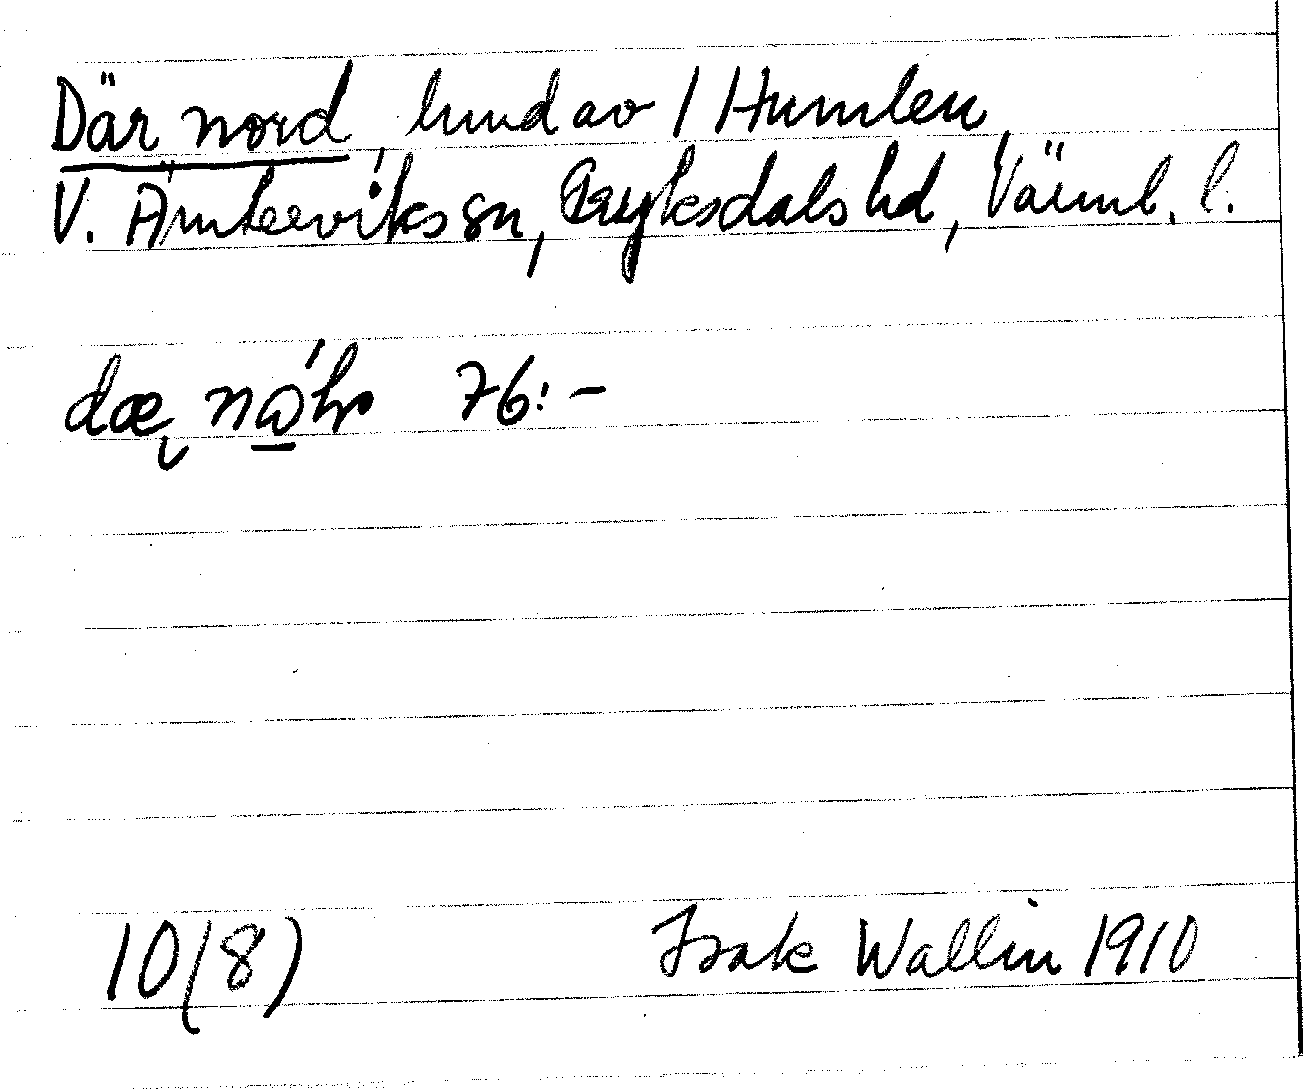 Där nord, hmd av 1 Humlen,
V. Ämterviks sn, Fryksdals hd, Värml. l.
76:-
10(8) Isak Wallin 1910